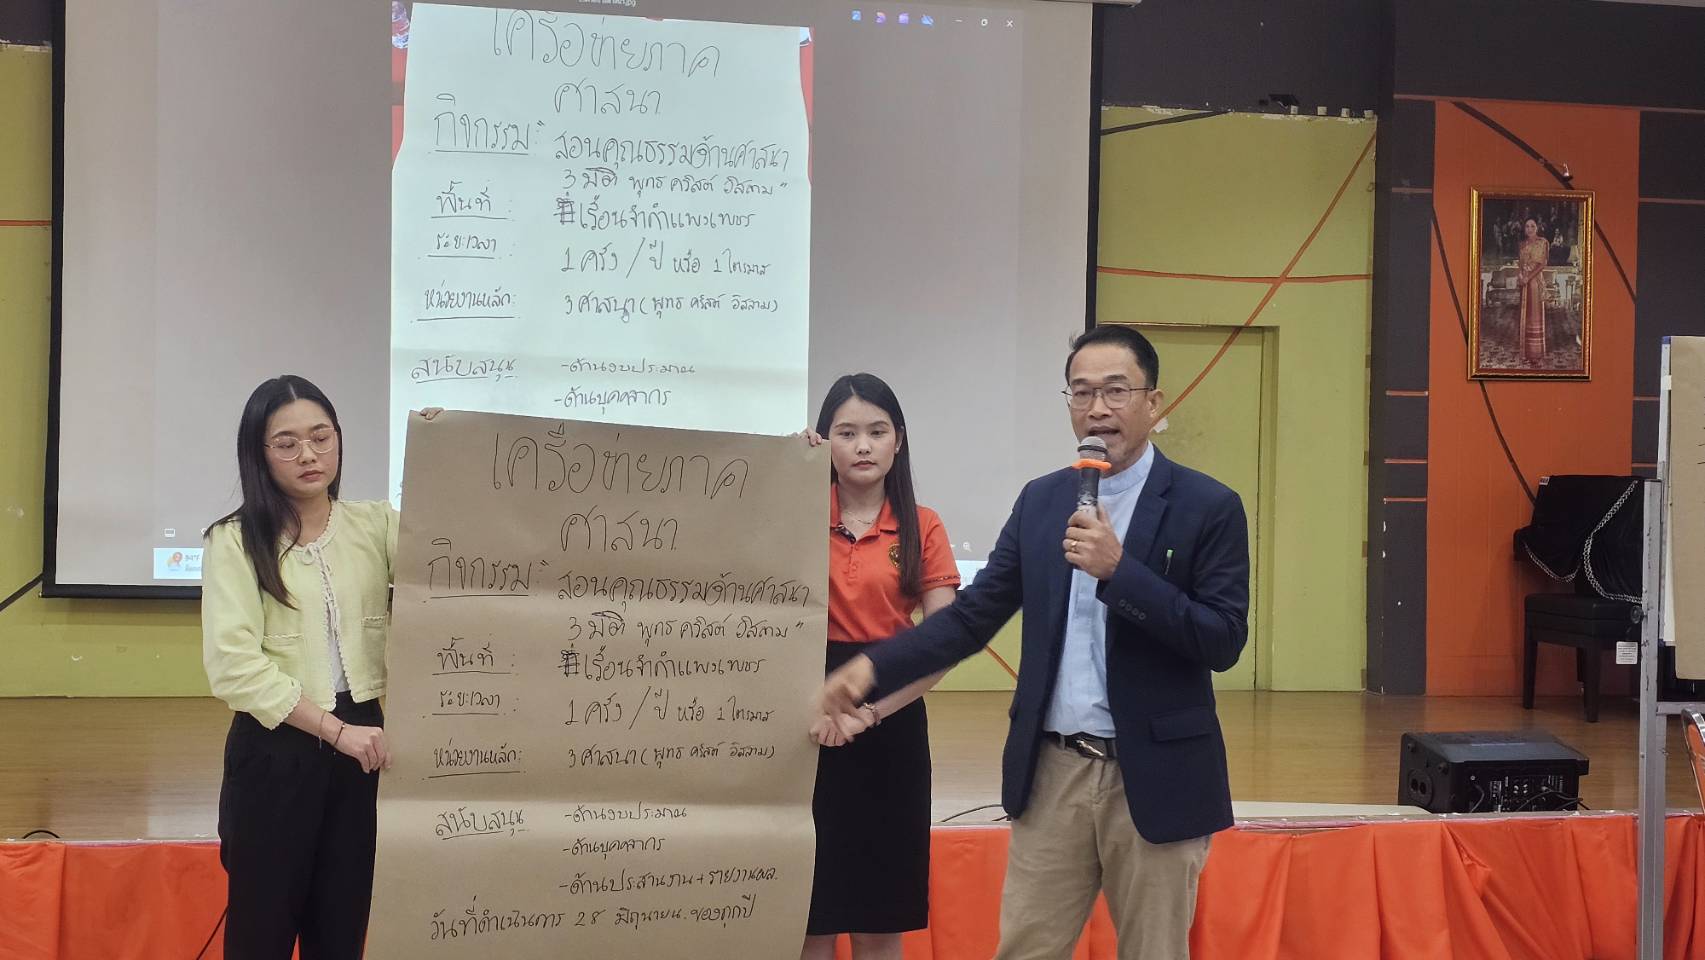 เครือข่ายภาค
ศาสนา
กิจกรรม: สอนคุณธรรมด้านศาสนา
3 มิติ พุทธ คริสต์ อิสลาม"
พื้นที่ : เรือนจำกำแพงเพชร
ระยะเวลา : 1 ครั้ง / ปี หรือ 1 ไตรมาส
หน่วยงานหลัก: 3 ศาสนา (พุทธ คริสต์ อิสลาม)
สนับสนุน - ด้านงบประมาณ
- ด้านบุคคลากร
เครือข่ายภาค
ศาสนา
กิจกรรม: สอนคุณธรรมด้านศาสนา
3 มิติ พุทธ คริสต์ อิสลาม"
พื้นที่ : เรือนจำกำแพงเพชร
ระยะเวลา : 1 ครั้ง / ปี หรือ 1 ไตรมาส
หน่วยงานหลัก: 3 ศาสนา (พุทธ คริสต์ อิสลาม)
สนับสนุน - ด้านงบประมาณ
- ด้านบุคคลากร
- ด้านประสานงาน + รายงานผล.
วันที่ดำเนินการ 28 มิถุนายน ของทุกปี